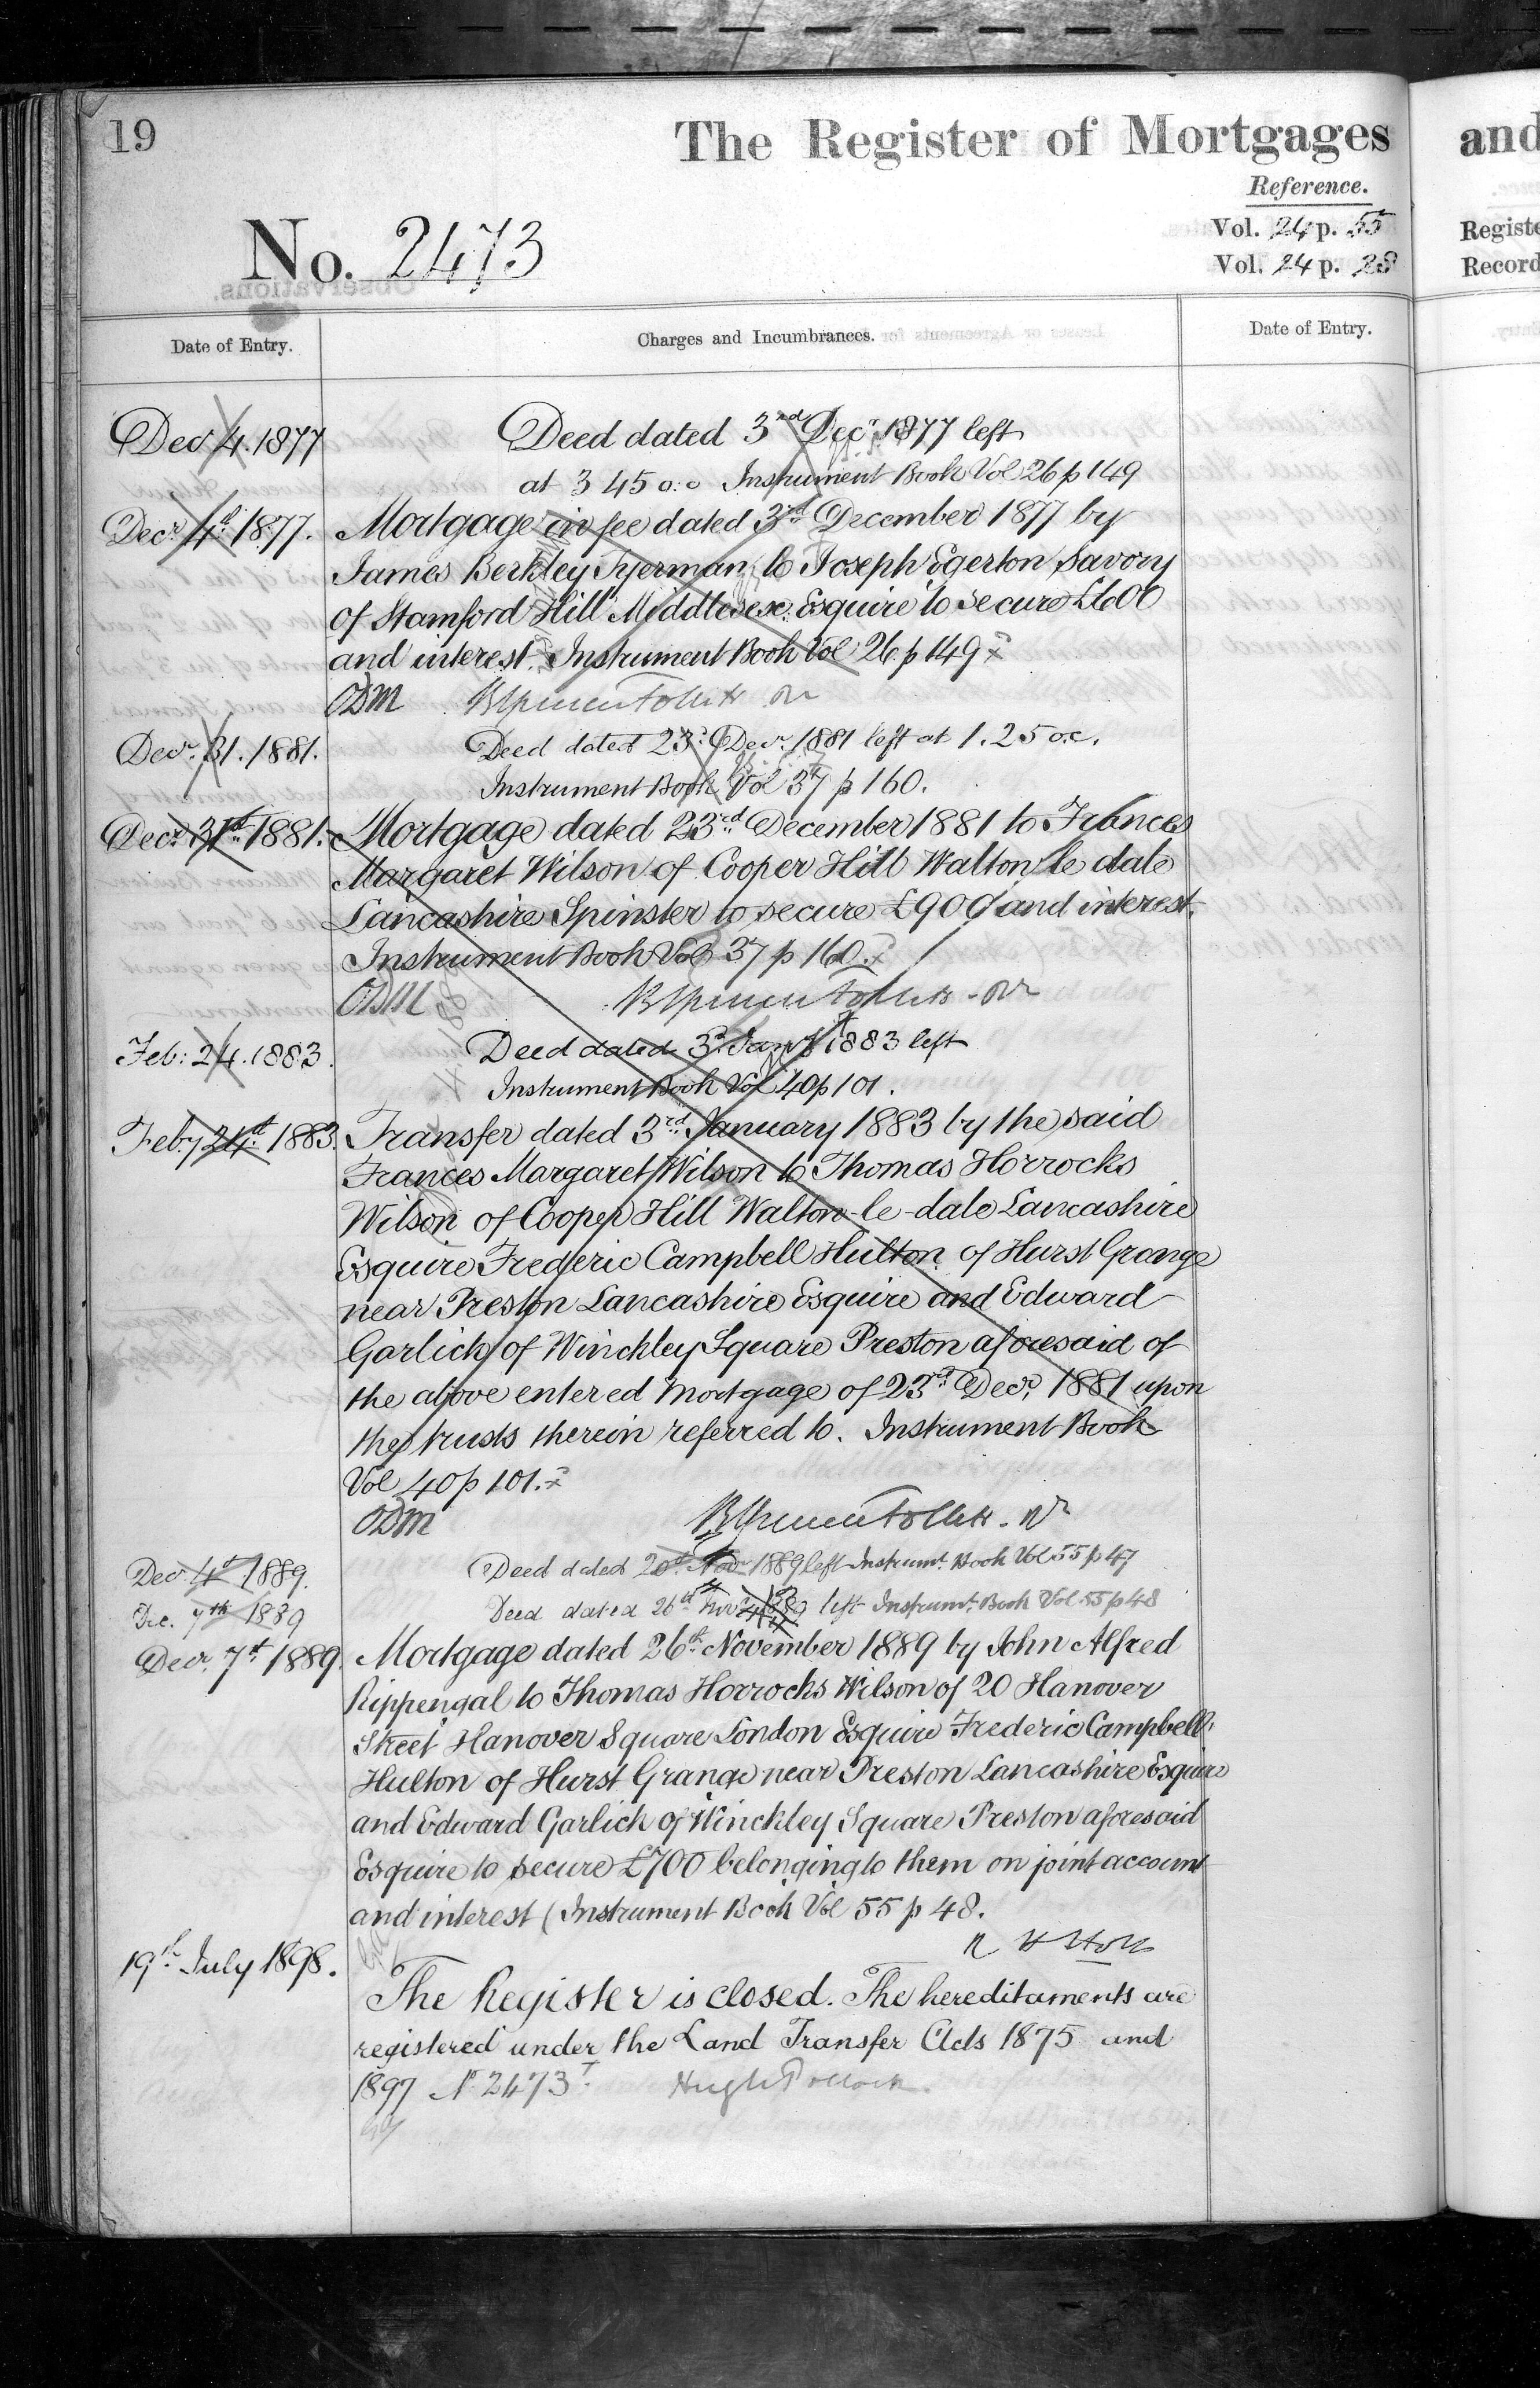 19
The Register of Mortgages
and
Reference.
Vol. 24 p. 55
Vol. 24 p. 28
Registe
Record
No. 2473
Date of Entry.
Charges and Incumbrances.
Date of Entry.
Decr 4. 1877
Deed dated 3rd Decr 1877 left
at 3 45 o.c Instrument Book Vol 26 p 149
Decr 4th 1877.
Mortgage in fee dated 3rd December 1877 by
James Berkley Tyerman to Joseph Egerton Savory
of Stamford Hill Middlesex Esquire to secure £600
and interest. Instrument Book Vol 26 p 149
ODM
Decr. 31. 1881.
Deed dated 23rd Decr. 1881 left at 1.25 o.c.
Instrument Book Vol 37 p 160.
Decr 31st 1881.
Mortgage dated 23rd December 1881 to Frances
Margaret Wilson of Cooper Hill Walton le dale
Lancashire Spinster to secure £900 and interest.
Instrument Book Vol 37 p 160.
ODM
Feb: 24. 1883.
Deed dated 3rd Jany 1883 left
Instrument Book Vol 40 p 101.
Feby 24th 1883.
Transfer dated 3rd January 1883 by the said
Frances Margaret Wilson to Thomas Horrocks
Wilson of Cooper Hill Walton-le-dale Lancashire
Esquire Frederic Campbell Hulton of Hurst Grange
near Preston Lancashire Esquire and Edward
Garlick of Winckley Square Preston aforesaid of
the above entered Mortgage of 23rd Decr. 1881 upon
the trusts therein referred to. Instrument Book
Vol 40 p 101.
ODM
Decr. 4th 1889.
Deed dated 20th Novr 1889 left Instrumt. Book Vol 55 p 47
Dec. 7th 1889
Deed dated 26th Nov 1889 left Instrumt. Book Vol 55 p 48
Decr. 7th 1889.
Mortgage dated 26th November 1889 by John Alfred
Rippengal to Thomas Horrocks Wilson of 20 Hanover
Street Hanover Square London Esquire Frederic Campbell
Hulton of Hurst Grange near Preston Lancashire Esquire
and Edward Garlick of Winckley Square Preston aforesaid
Esquire to secure £700 belonging to them on joint account
and interest (Instrument Book Vol 55 p 48.
19th July 1898.
The Register is closed. The hereditaments are
registered under the Land Transfer Acts 1875 and
1897 No 2473T. Hugh Pollock.